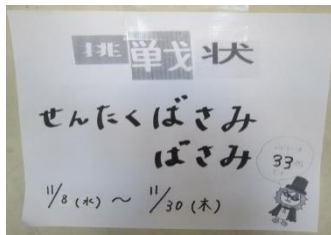 挑戦状
せんたくばさみ
ばさみ
33
11/8(水)～11/30(木)